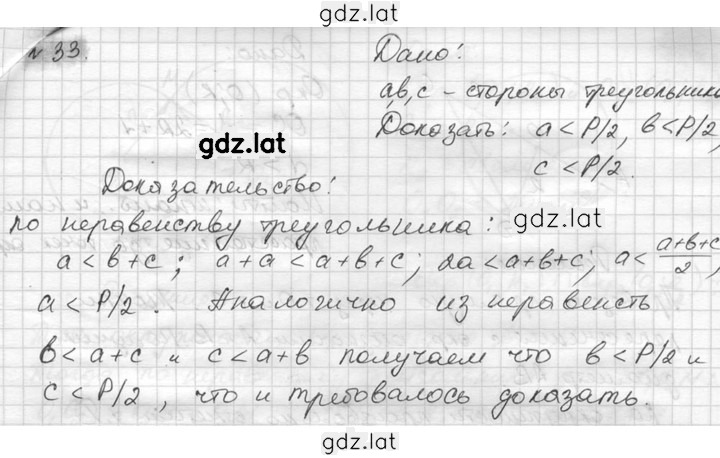 gdz.lat
№ 33.
Дано:
a,b,c - стороны треугольника
gdz.lat
Доказать: a < P/2, b < P/2,
c < P/2.
Доказательство:
по неравенству треугольника:
gdz.lat
a < b + c ; a + a < a + b + c ; 2a < a+b+c ; a < (a+b+c)/2,
a < P/2 . Аналогично из неравенств
b < a + c и c < a + b получаем что b < P/2 и
c < P/2 , что и требовалось доказать.
gdz.lat